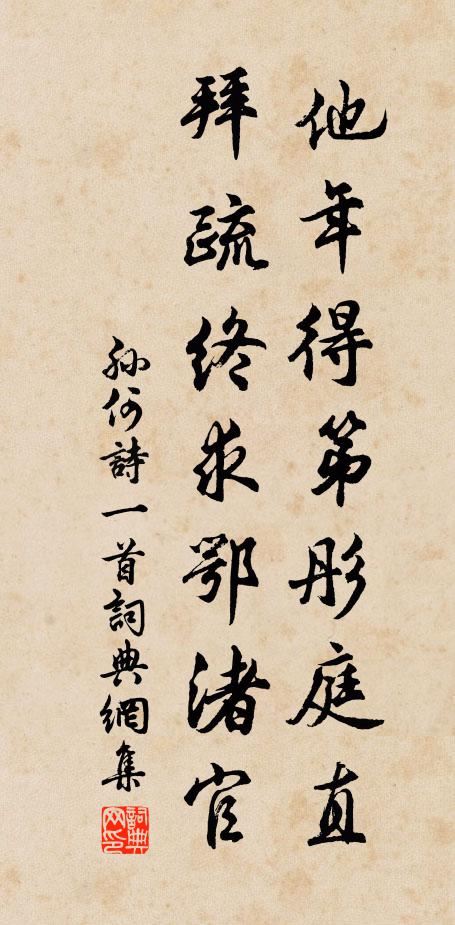 他年得第彤庭直
拜疏終求鄂渚官
孫何詩一首詞典網集
詞典網印